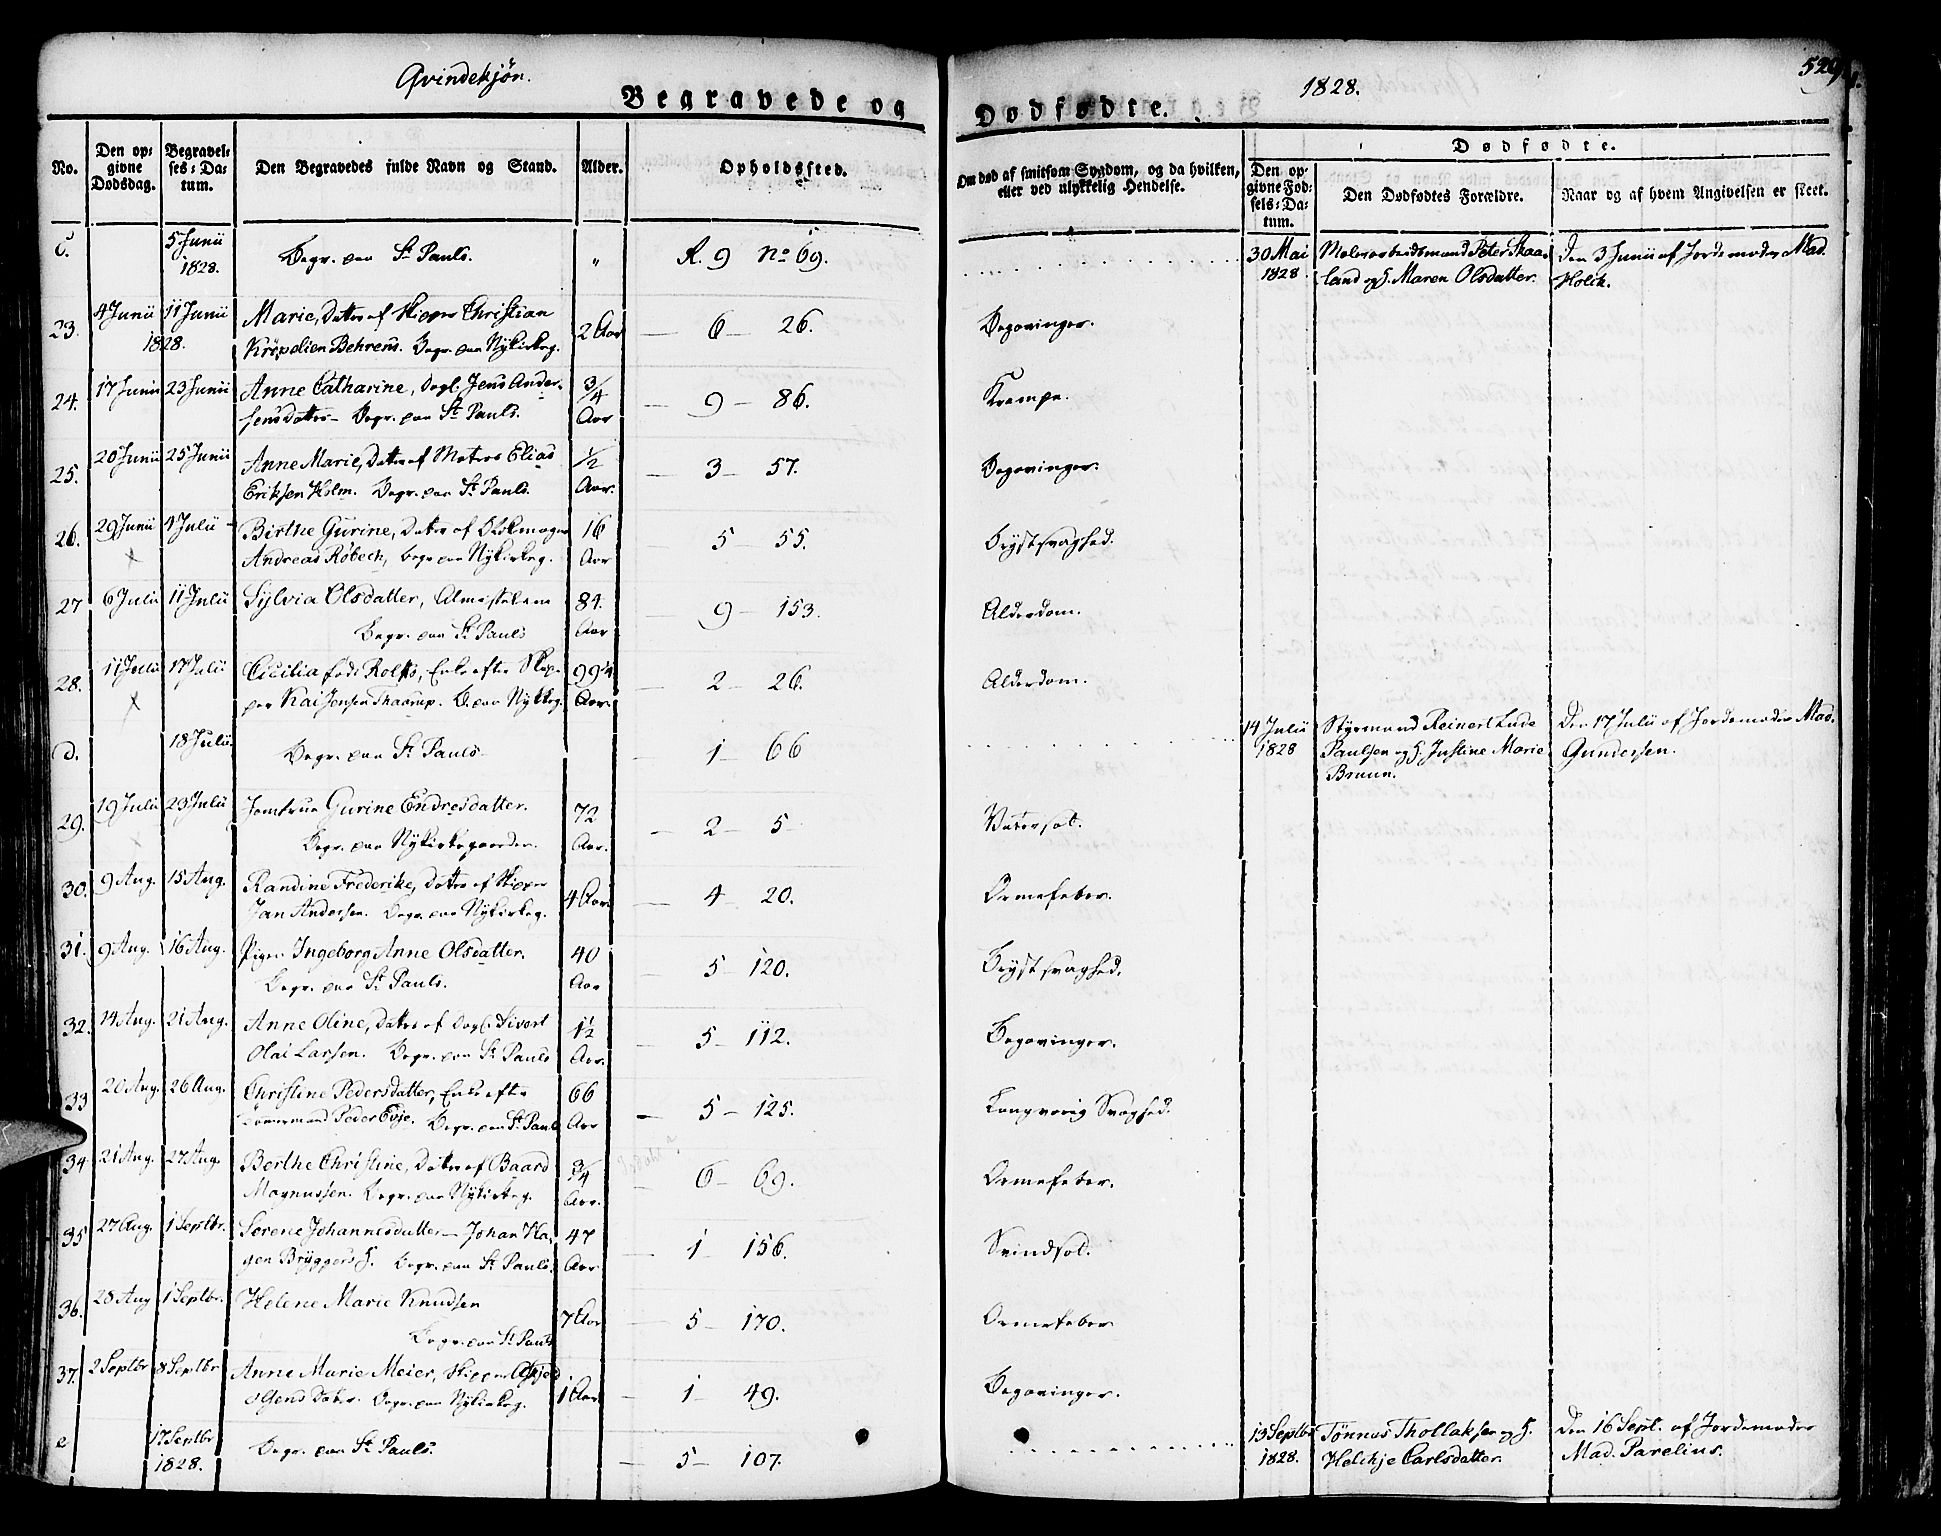 Qvindekjøn.
Begravede og
No.
Den opgivne Dødsdag.
Begravelses-Datum.
Den Begravedes fulde Navn og Stand.
Alder.
Opholdssted.
c.
5 Junii 1828.
Begr. paa St. Pauls.
"
R. 9 No 69.
23.
4 Junii 11 Junii 1828.
Marie, Datter af Skipper Christian
Krøpelien Behrens. Begr. paa Nykirkeg.
2 Aar
— 6 — 26.
24.
17 Junii 23 Junii
Anne Catharine, Dagl. Jens Ander-
sens Datter — Begr. paa St. Pauls.
3/4 Aar
— 9 — 86.
25.
20 Junii 25 Junii
Anne Marie, Datter af Matros Elias
Eriksen Holm. Begr. paa St. Pauls.
1/2 Aar.
— 3 — 57.
26.
29 Junii 4 Julii
Birthe Gurine, Datter af
Andreas Røbech, begr. paa Nykirkeg.
16 Aar
5 — 55.
27
6 Julii 11 Julii
Sylvia Olsdatter, Almisselem
Begr. paa St. Pauls
84. Aar
— 9 — 153.
28.
11 Julii 17 Julii
Cicilia født Rolfs, Enke efter Skip-
per Kai Jensen Thaarup. B. paa Nykkeg.
Aar.
— 2 — 26.
d.
18 Julii
Begr. paa St. Pauls
— 1 — 66
29.
19 Julii 23 Julii
Jomfrue Gurine Endresdatter.
Begr. paa Nykirkegaarden.
72 Aar.
— 2 — 5
30.
9 Aug. 15 Aug.
Randine Frederike, Datter af Skipper
Jan Andersen. Begr. paa Nykirkeg.
4 Aar.
— 4 — 20.
31.
9 Aug. 16 Aug.
Pigen Ingeborg Anne Olsdatter.
Begr. paa St. Pauls.
40 Aar
— 5 — 120.
32.
14 Aug. 21 Aug.
Anne Oline, Datter af Dagl. Sivert
Olai Larsen. Begr. paa St. Pauls
1 1/2 Aar.
— 5 — 112.
33
20 Aug. 26 Aug.
Christine Pedersdatter, Enke efter
Tømmermand Peder Evje. Begr. paa St. Pauls
66 Aar
— 5 — 125.
34
21 Aug. 27 Aug.
Berthe Christine, Datter af Baard
Magnussen. Begr. paa Nykirkeg.
3/4 Aar.
— 6 — 69.
35
27 Aug. 1 Septbr.
Serene Johannesdatter — Johan Ha-
gen Bryggers H. Begr. paa St. Pauls.
47 Aar
— 1 — 156.
36.
28 Aug 1 Septbr.
Helene Marie Knudsen
Begr. paa St. Pauls
7 Aar
— 5 — 170.
37.
2 Septbr 8 Septbr
Anne Marie Meier, Skipper
Datter. Begr. paa Nykirkeg.
1 Aar.
— 1 — 49.
e
17 Septbr 1828.
Begr. paa St. Pauls.
— 5 — 107.
1828.
529
Dødfødte.
Om død af smitsom Sygdom, og da hvilken, eller ved ulykkelig Hendelse.
Dødfødte.
Den opgivne Fødsels-Datum.
Den Dødfødtes Forældre.
Naar og af hvem Angivelsen er skeet.
30 Mai 1828
Peter Skaa-
land og H. Maren Olsdatter.
Den 3 Junii af Jordemoder Mad.
Holck.
Begavinger.
Krampe.
Begavinger.
Brystsvaghed.
Alderdom.
Alderdom.
14 Julii 1828
Styrmand Reinert Lude
Paulsen og H. Justine Marie
Bruun.
Den 17 Julii af Jordemoder Mad.
Gundersen.
Vatersot.
Ormefeber.
Brystsvaghed.
Begavinger.
Langvarig Svaghed.
Ormefeber.
Svindsot.
Ormefeber
Begavinger.
13 Septbr 1828.
Tønnes Thollaksen og H.
Helchje Carlsdatter.
Den 16 Sept. af Jordemoder
Mad. Parelius.